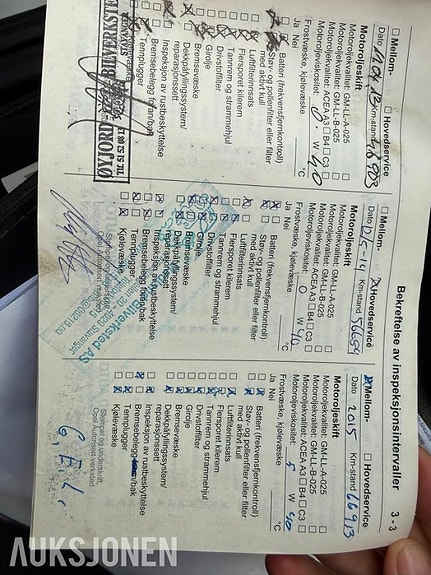 Bekreftelse av inspeksjonsintervaller 3 - 3
☐ Mellom- ☐ Hovedservice
Dato Km-stand
Motoroljeskift
Motoroljekvalitet: GM-LL-A-025
Motoroljekvalitet: GM-LL-B-025
Motoroljekvalitet: ACEA A3 B4 C3
Motoroljeviskositet: 0 W 40
Frostvæske, kjølevæske °C
Ja Nei
Batteri (frekvensfjernkontroll)
Støv- og pollenfilter eller filter
med aktivt kull
Luftfilterinnsats
Flersporet kilerem
Tannrem og strammehjul
Drivstoffilter
Girolje
Bremsevæske
Dekkpåfyllingssystem/
reparasjonssett
Inspeksjon av rustbeskyttelse
Bremsebelegg foran/bak
Tennplugger
Mellom- Hovedservice
Dato 12/5-14 Km-stand 56659
Motoroljeskift
Motoroljekvalitet: GM-LL-A-025
Motoroljekvalitet: GM-LL-B-025
Motoroljekvalitet: ACEA A3 B4 C3
Motoroljeviskositet: 0 W 40
Frostvæske, kjølevæske °C
Ja Nei
Batteri (frekvensfjernkontroll)
Støv- og pollenfilter eller filter
med aktivt kull
Luftfilterinnsats
Flersporet kilerem
Tannrem og strammehjul
Drivstoffilter
Girolje
Bremsevæske
Dekkpåfyllingssystem/
reparasjonssett
Inspeksjon av rustbeskyttelse
Bremsebelegg foran/bak
Tennplugger
Kjølevæske
Bilverksted AS
Mellom- Hovedservice
Dato 2015 Km-stand 66913
Motoroljeskift
Motoroljekvalitet: GM-LL-A-025
Motoroljekvalitet: GM-LL-B-025
Motoroljekvalitet: ACEA A3 B4 C3
Motoroljeviskositet: 5 W 40
Frostvæske, kjølevæske °C
Ja Nei
Batteri (frekvensfjernkontroll)
Støv- og pollenfilter eller filter
med aktivt kull
Luftfilterinnsats
Flersporet kilerem
Tannrem og strammehjul
Drivstoffilter
Girolje
Bremsevæske
Dekkpåfyllingssystem/
reparasjonssett
Inspeksjon av rustbeskyttelse
Bremsebelegg foran/bak
Tennplugger
Kjølevæske
Stempel og underskrift,
Opel Autorisert verksted
AUKSJONEN